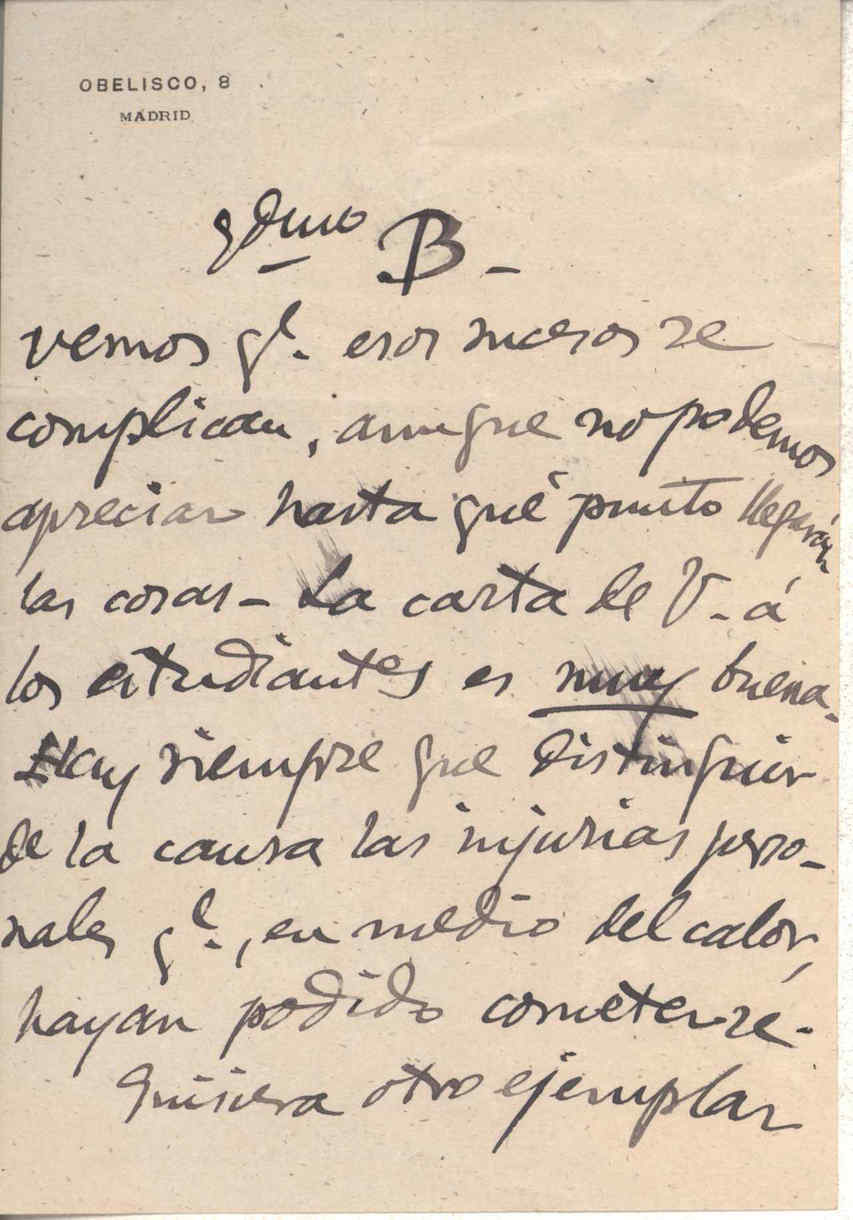 OBELISCO, 8
MADRID
qdmo B-
vemos qe. esos sucesos se
complican, aunque no podemos
apreciar hasta qué punto llegarán
las cosas- La carta de V- á
los estudiantes es muy buena-
Hay siempre que distinguir
de la causa las injurias perso-
nales qe., en medio del calor,
hayan podido cometerse.
Quisiera otro ejemplar